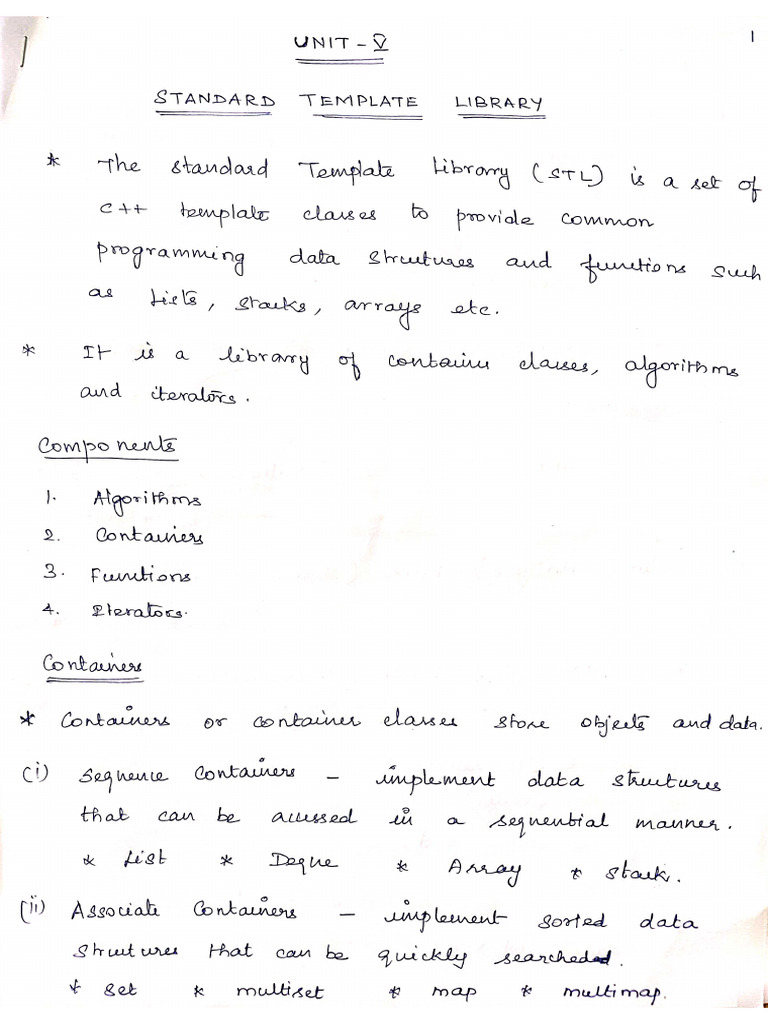 1
UNIT - V
STANDARD TEMPLATE LIBRARY
* The standard Template Library (STL) is a set of
C++ template classes to provide common
programming data structures and functions such
as lists, stacks, arrays etc.
* It is a library of container classes, algorithms
and iterators.
Components
1. Algorithms
2. Containers
3. Functions
4. Iterators.
Containers
* Containers or container classes store objects and data.
(i) Sequence Containers - implement data structures
that can be accessed in a sequential manner.
* List * Deque * Array * Stack.
(ii) Associate Containers - implement sorted data
structures that can be quickly searched.
* set * multiset * map * multimap.